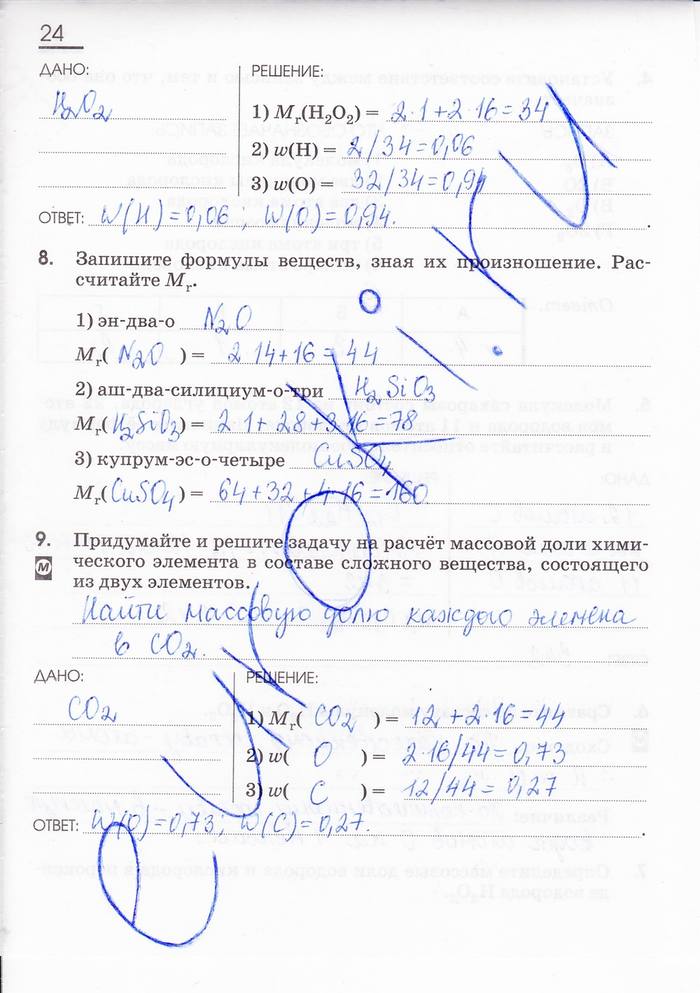 24
ДАНО:
РЕШЕНИЕ:
H₂O₂
1) Mr(H₂O₂) = 2·1+2·16=34
2) w(H) = 2/34=0,06
3) w(O) = 32/34=0,94
ОТВЕТ: W(H)=0,06, W(O)=0,94.
8. Запишите формулы веществ, зная их произношение. Рас-
считайте Mr.
1) эн-два-о N₂O
Mr( N₂O ) = 2·14+16=44
2) аш-два-силициум-о-три H₂SiO₃
Mr(H₂SiO₃) = 2·1+28+3·16=78
3) купрум-эс-о-четыре CuSO₄
Mr(CuSO₄) = 64+32+4·16=160
9. Придумайте и решите задачу на расчёт массовой доли хими-
М ческого элемента в составе сложного вещества, состоящего
из двух элементов.
Найти массовую долю каждого элемена
в CO₂.
ДАНО:
РЕШЕНИЕ:
CO₂
1) Mr( CO₂ ) = 12+2·16=44
2) w( O ) = 2·16/44=0,73
3) w( C ) = 12/44=0,27
ОТВЕТ: W(O)=0,73; W(C)=0,27.